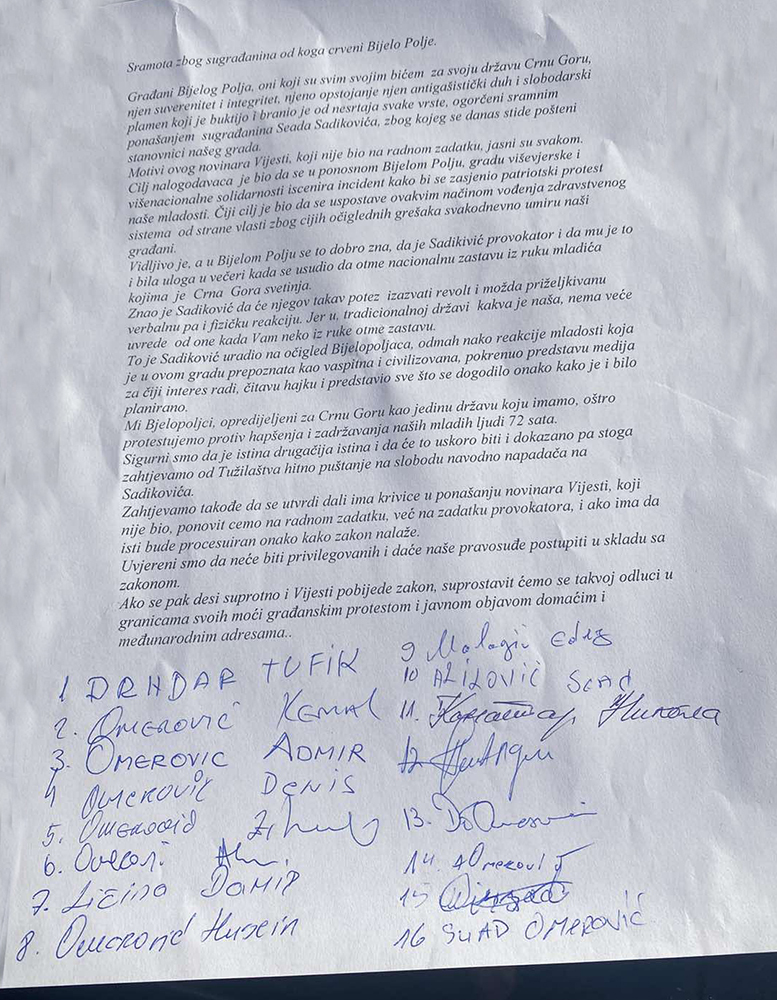 Sramota zbog sugrađanina od koga crveni Bijelo Polje.
Građani Bijelog Polja, oni koji su svim svojim bićem za svoju državu Crnu Goru,
njen suverenitet i integritet, njeno opstojanje njen antigašistički duh i slobodarski
plamen koji je buktijo i branio je od nesrtaja svake vrste, ogorčeni sramnim
ponašanjem sugrađanina Seada Sadikovića, zbog kojeg se danas stide pošteni
stanovnici našeg grada.
Motivi ovog novinara Vijesti, koji nije bio na radnom zadatku, jasni su svakom.
Cilj nalogodavaca je bio da se u ponosnom Bijelom Polju, gradu viševjerske i
višenacionalne solidarnosti iscenira incident kako bi se zasjenio patriotski protest
naše mladosti. Čiji cilj je bio da se uspostave ovakvim načinom vođenja zdravstvenog
sistema od strane vlasti zbog cijih očiglednih grešaka svakodnevno umiru naši
građani.
Vidljivo je, a u Bijelom Polju se to dobro zna, da je Sadikivić provokator i da mu je to
i bila uloga u večeri kada se usudio da otme nacionalnu zastavu iz ruku mladića
kojima je Crna Gora svetinja.
Znao je Sadiković da će njegov takav potez izazvati revolt i možda priželjkivanu
verbalnu pa i fizičku reakciju. Jer u, tradicionalnoj državi kakva je naša, nema veće
uvrede od one kada Vam neko iz ruke otme zastavu.
To je Sadiković uradio na očigled Bijelopoljaca, odmah nako reakcije mladosti koja
je u ovom gradu prepoznata kao vaspitna i civilizovana, pokrenuo predstavu medija
za čiji interes radi, čitavu hajku i predstavio sve što se dogodilo onako kako je i bilo
planirano.
Mi Bjelopoljci, opredijeljeni za Crnu Goru kao jedinu državu koju imamo, oštro
protestujemo protiv hapšenja i zadržavanja naših mladih ljudi 72 sata.
Sigurni smo da je istina drugačija istina i da će to uskoro biti i dokazano pa stoga
zahtjevamo od Tužilaštva hitno puštanje na slobodu navodno napadača na
Sadikovića.
Zahtjevamo takođe da se utvrdi dali ima krivice u ponašanju novinara Vijesti, koji
nije bio, ponovit cemo na radnom zadatku, već na zadatku provokatora, i ako ima da
isti bude procesuiran onako kako zakon nalaže.
Uvjereni smo da neće biti privilegovanih i daće naše pravosuđe postupiti u skladu sa
zakonom.
Ako se pak desi suprotno i Vijesti pobijede zakon, suprostavit ćemo se takvoj odluci u
granicama svojih moći građanskim protestom i javnom objavom domaćim i
međunarodnim adresama..
1 DRNDAR TUFIK
2. OMEROVIĆ KEMAL
3. OMEROVIC ADMIR
4 OMEROVIĆ DENIS
5.
6.
7. Ličina DAMIR
8. Omerović Husein
9
10 SEAD
11. Никола
12
13.
14. Omerović
15
16 SUAD OMEROVIĆ